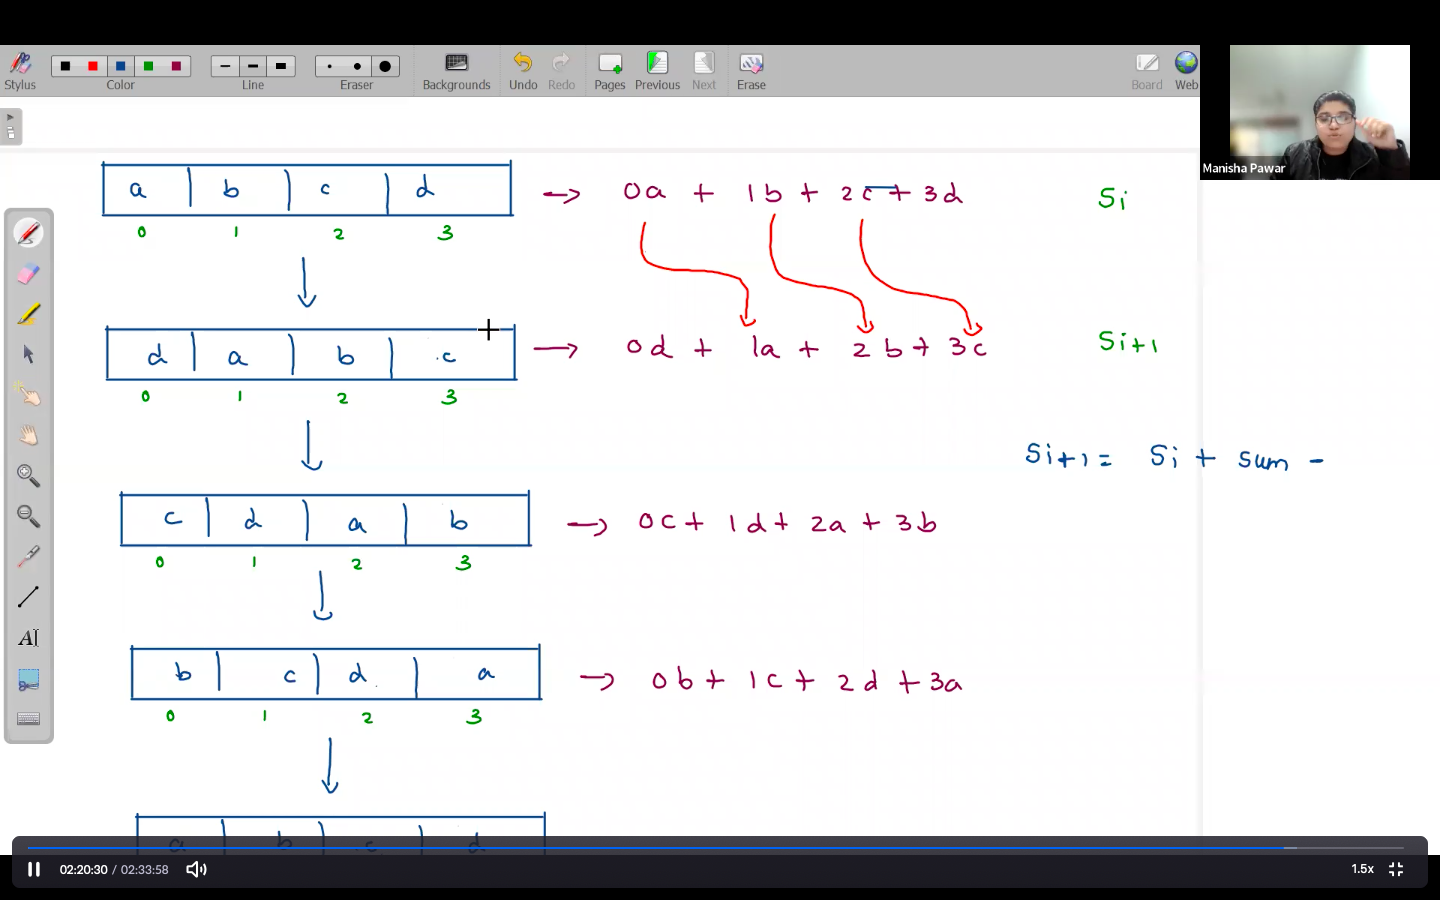 Stylus Color Line Eraser Backgrounds Undo Redo Pages Previous Next Erase Board Web
Manisha Pawar
a b c d → 0a + 1b + 2c + 3d Si
0 1 2 3
d a b c → 0d + 1a + 2b + 3c Si+1
0 1 2 3
Si+1 = Si + sum -
c d a b → 0c + 1d + 2a + 3b
0 1 2 3
b c d a → 0b + 1c + 2d + 3a
0 1 2 3
a b c d
AI
02:20:30 / 02:33:58 1.5x